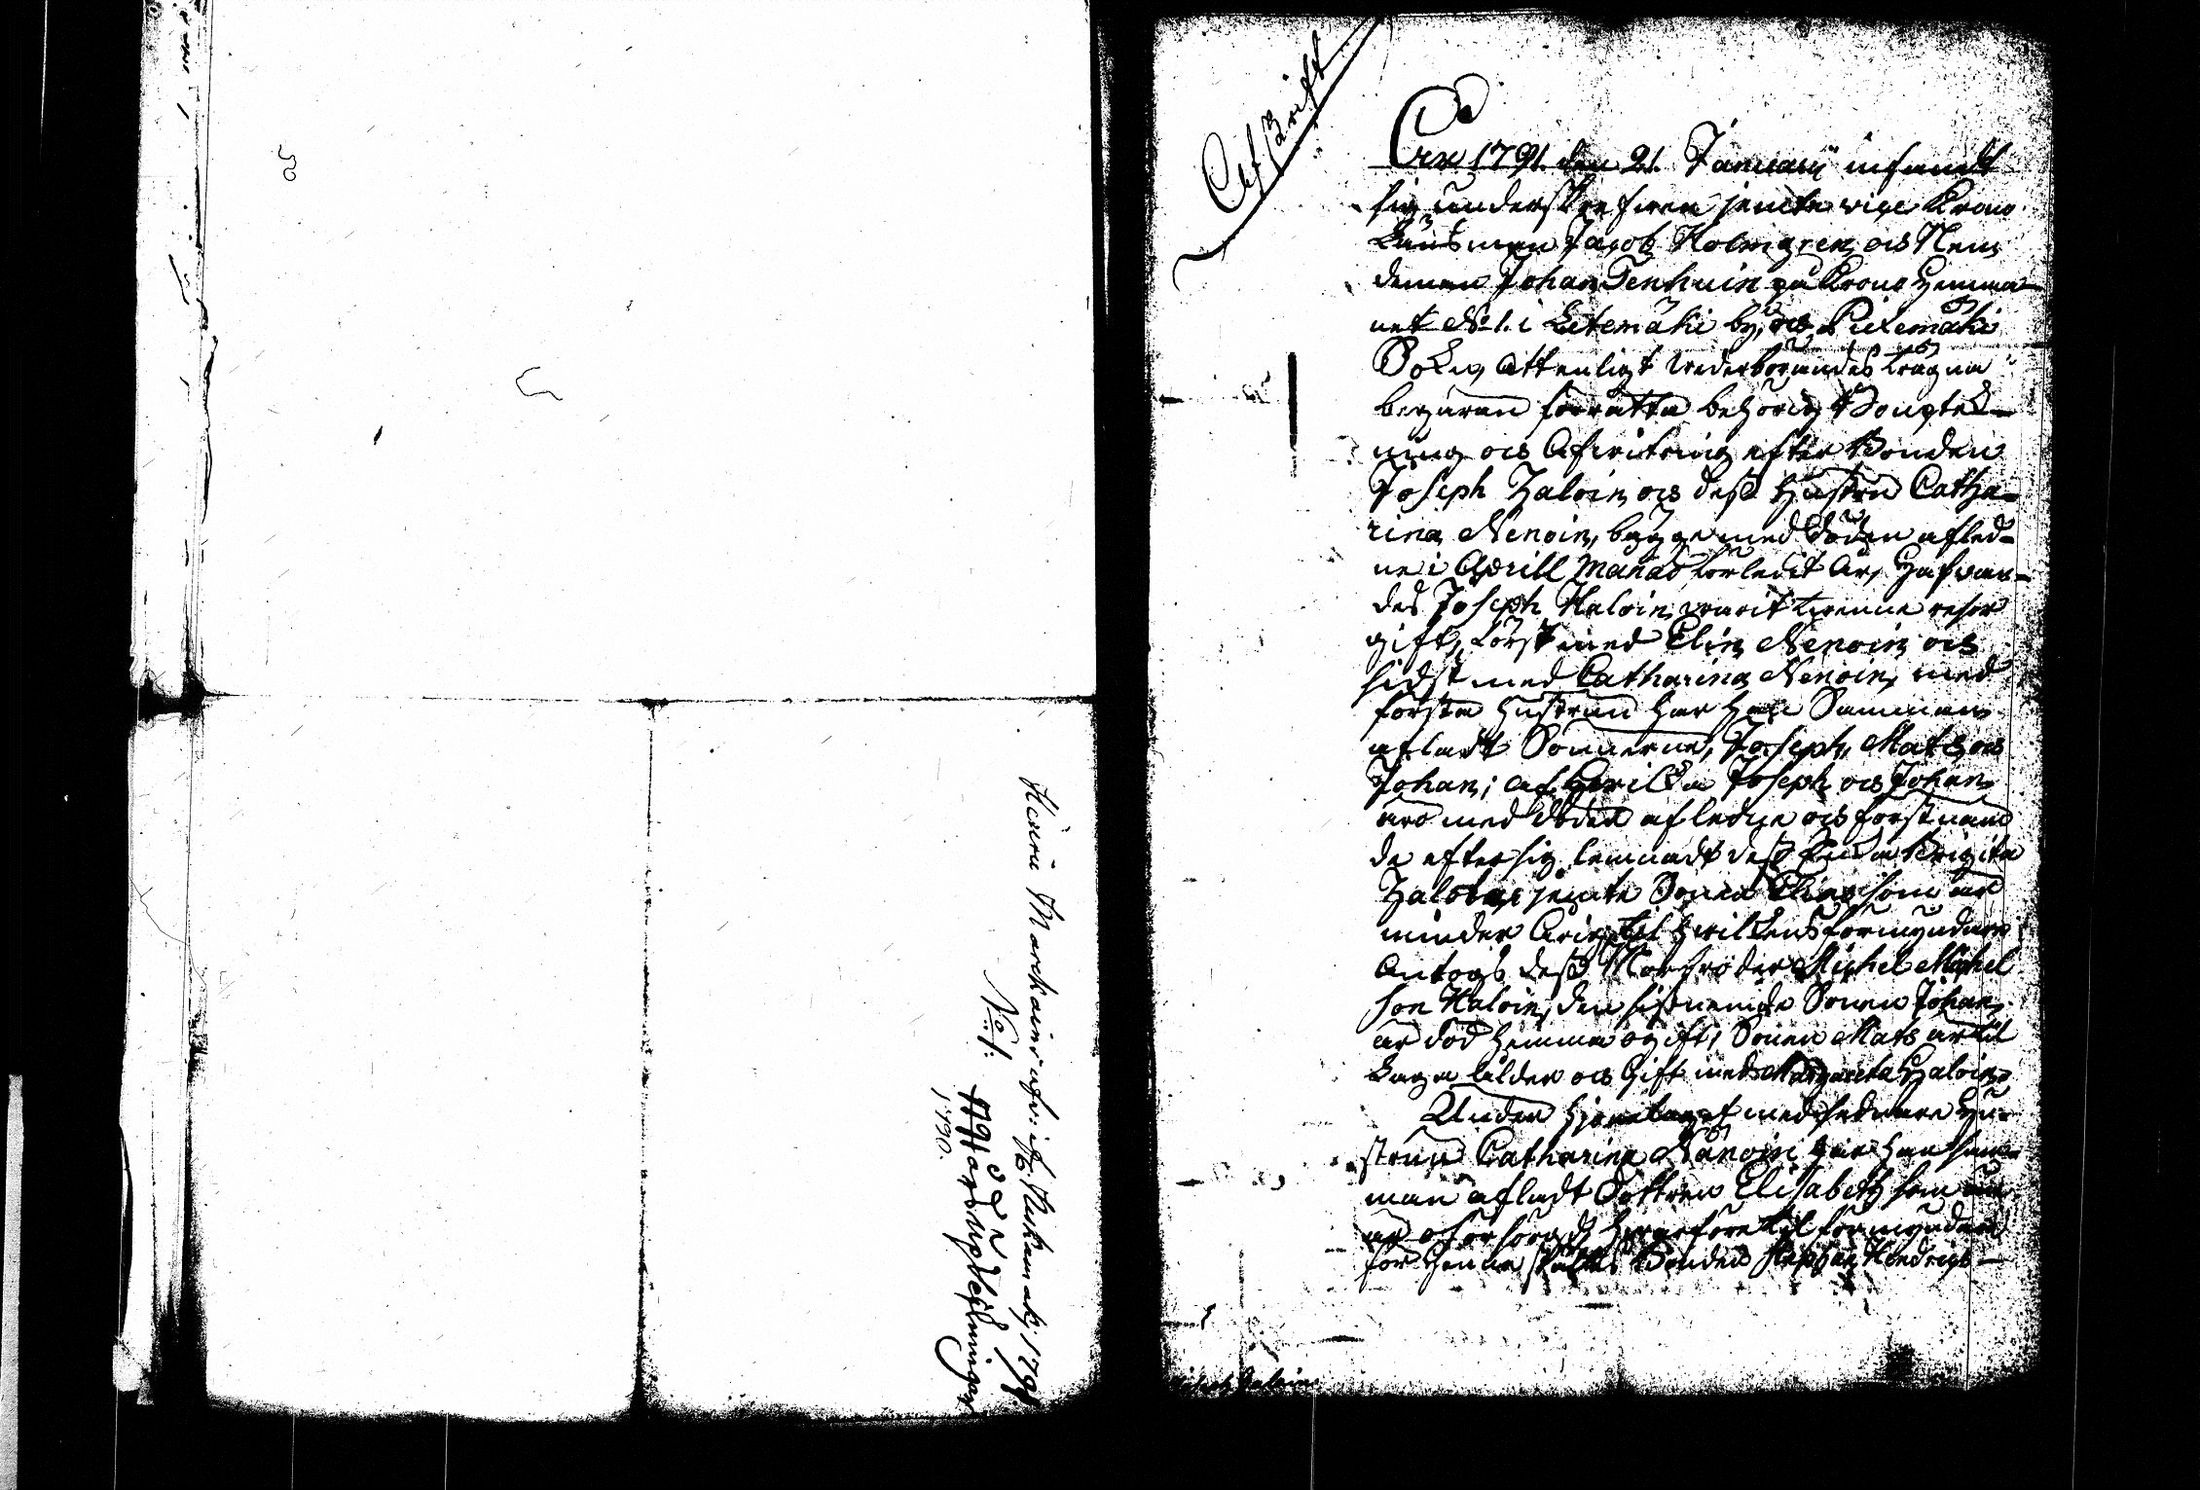 Afskrift
Åhr 1791. den 21. Januarii infandt
sig underskrefven jemte vice Krono
Länsman Jacob Holmgren och Näm
deman Johan Tenhuin på Krono Hemma
net No 1. i Letemäki by, och Pielemäki
Sokn, att enligt vederbörandes trägna
begäran förrätta behörig Boupteck-
ning och Afvitring efter Bonden
Joseph Haloin och dess Hustru Catha-
rina Nenoin, bägge med döden afled-
ne i Aprill Månad förledit År, Hafvan-
des Joseph Haloin varit tvenne resor
gift, först med Elin Nenoin och
sidst med Catharina Nenoin, med
första Hustrun har Han Samman
afladt Sönerne, Joseph, Mats och
Johan; af Hvilka Joseph och Johan
äro med döden afledne och förstnämn
de efter sig lemnadt dess Enka Brigita
Haloin jemte Sonen Elias som är
minder Årig, til Hvilkens förmyndare
Antogs dess Morbroder Michel Michel
son Haloin, den sistnemde Sonen Johan
är död hemma ogift; Sonen Mats är til
Laga ålder och Gift med Margareta Haloin.
Under Hjonelaget med sednare Hu-
strun Catharina Nänoin har Han sam-
man afladt Dottren Elisabeth som än
är oförsörgd, Hvarföre til förmyndare
för Henne Bonden Stephan Hendrics-
Joseph Haloin
No 1.
Boupteckningar
1790.
1791